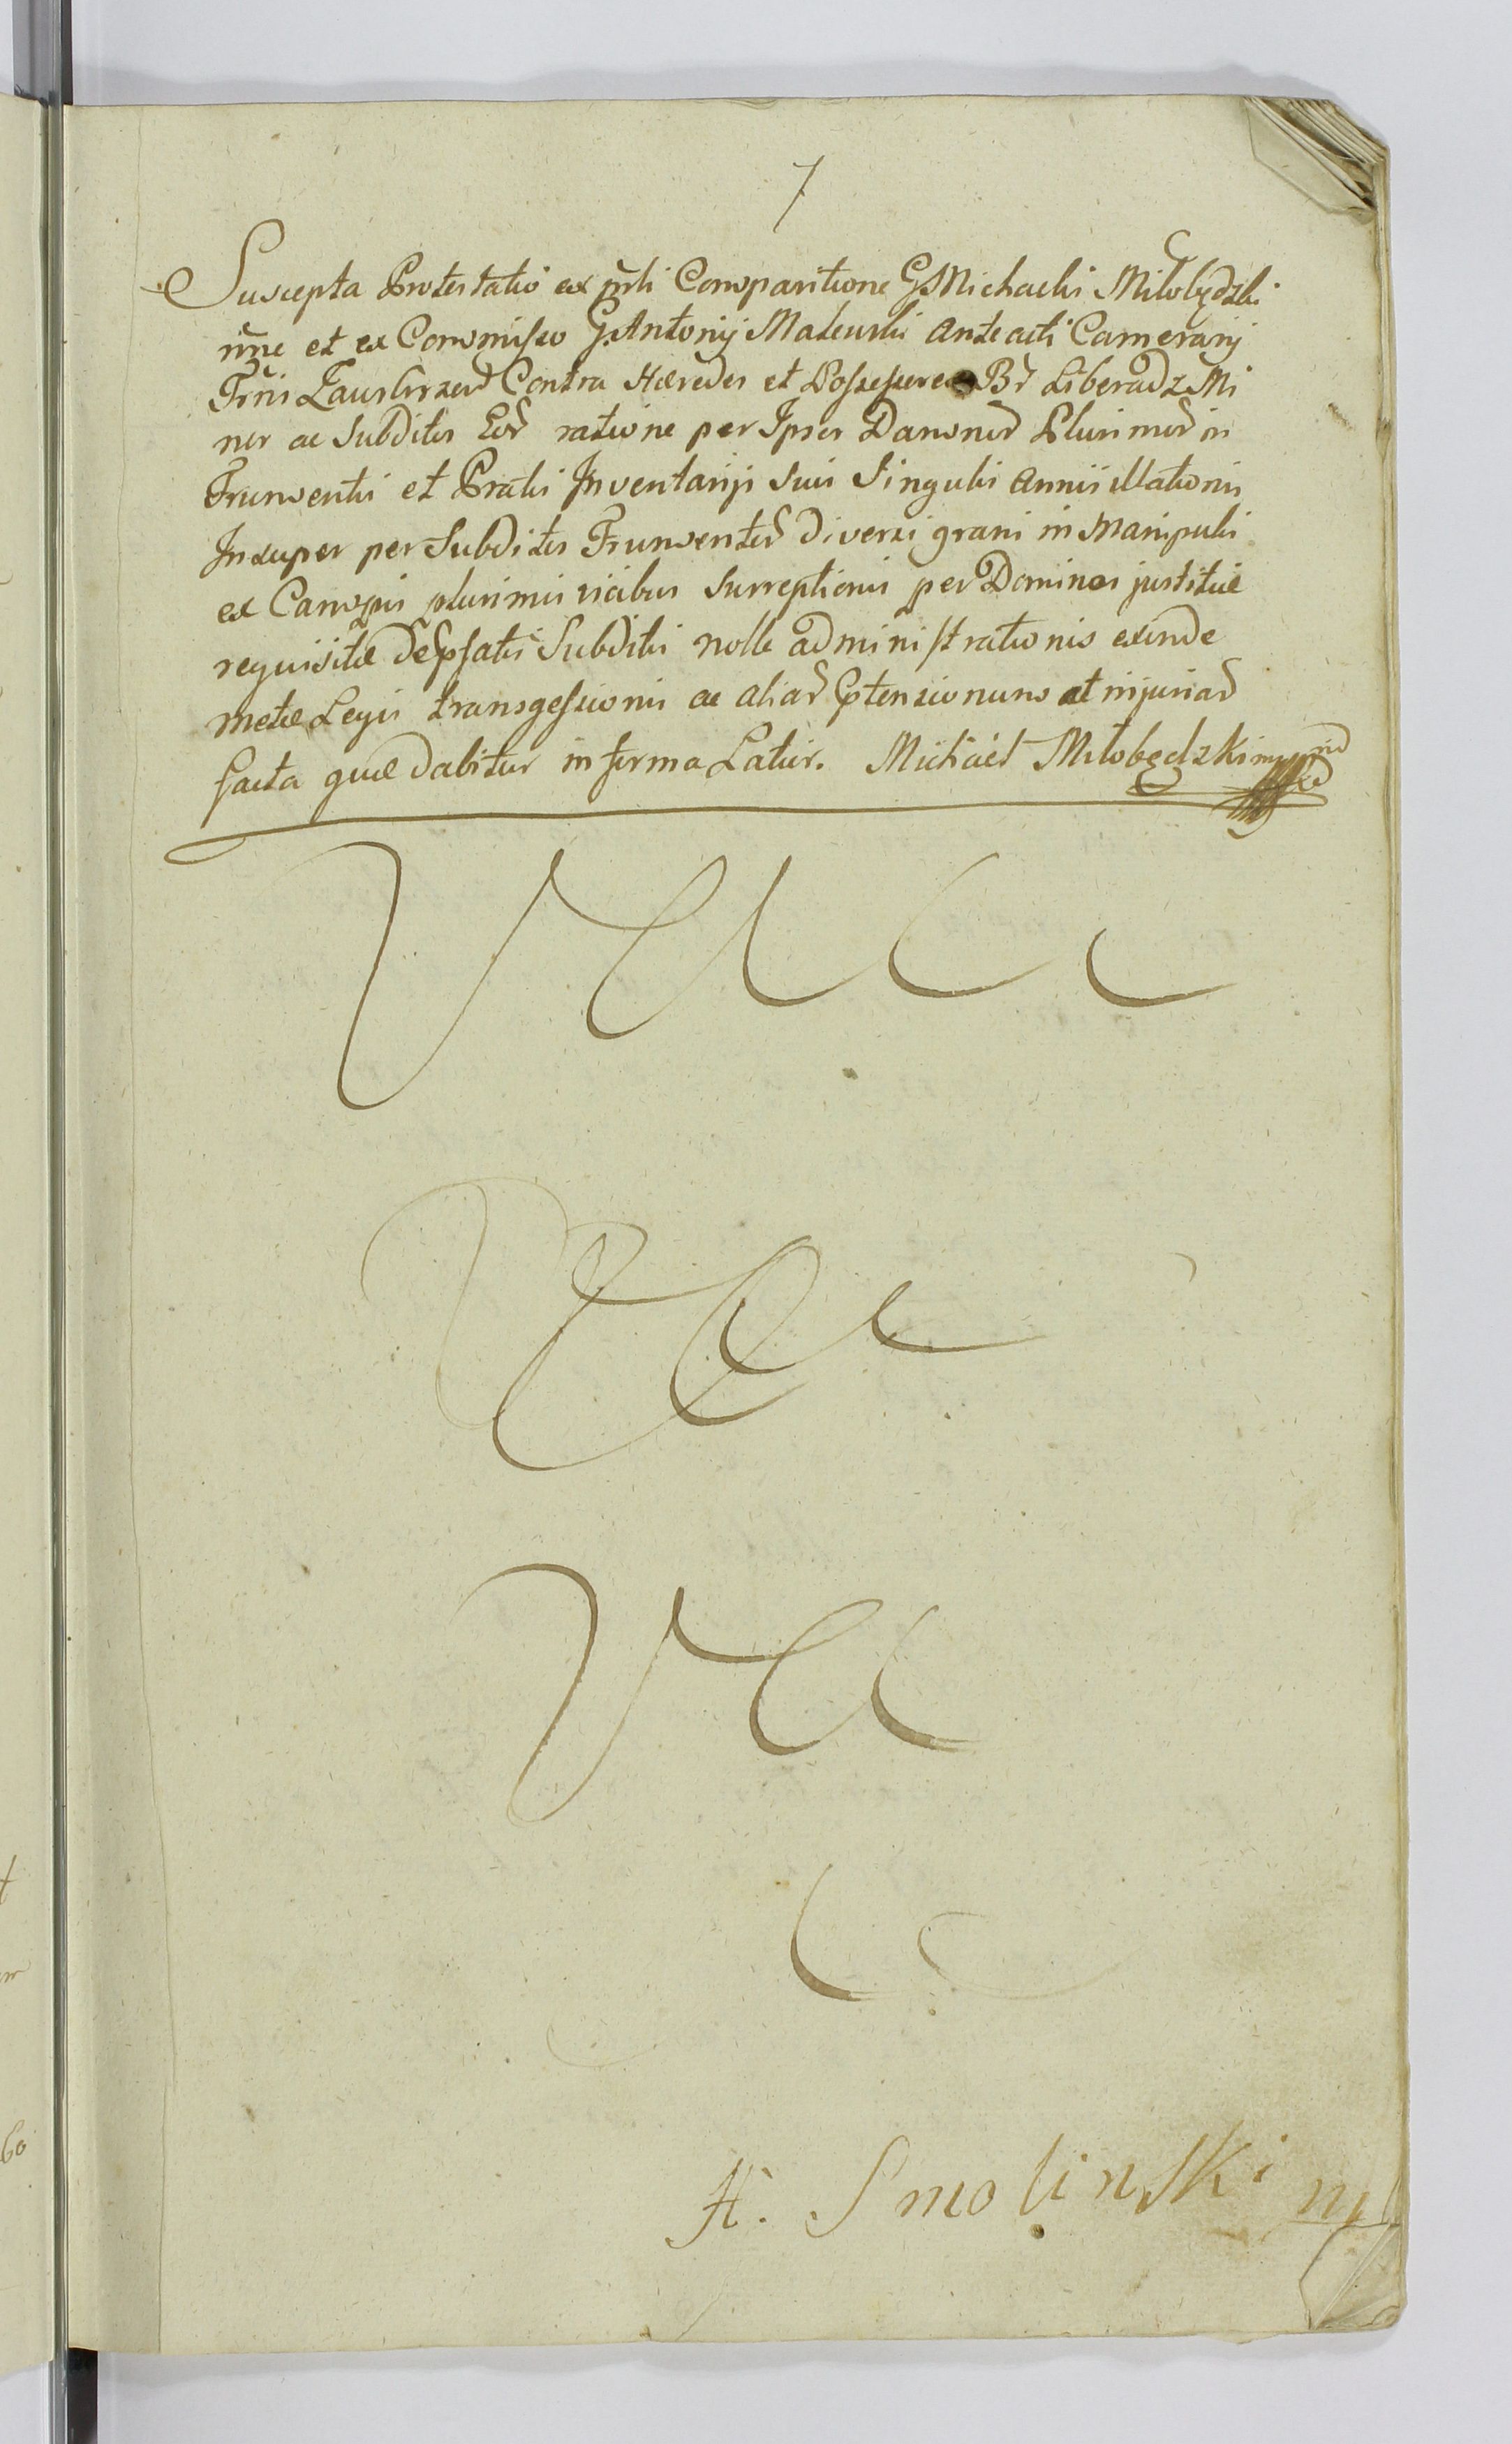 7
Suscepta Protestatio ex prsti Comparitione G. Michaelis Miłobędzki
nne et ex Commisso G. Antonij Mateuski Anteacti Camerarij
Trnis Contra Hæredes et Possessores Br Liberadz Mi
ner ac Subditos Eor ratione per Ipsos Damnor Plurimor in
Frumentis et Pratis Inventarij sui Singulis Annis illationis
Insuper per Subditos Frumentor diversi grani in Manipulis
ex Campis plurimis vicibus Surreptionis per Dominos justitiæ
requisitæ de psatis Subditis nolle administrationis exinde
metæ Legis transgessionis ac aliar Ptensionum et injuriar
facta quæ dabitur in forma Latior. Michaël Miłobędzki mpp
H. Smolinski mp